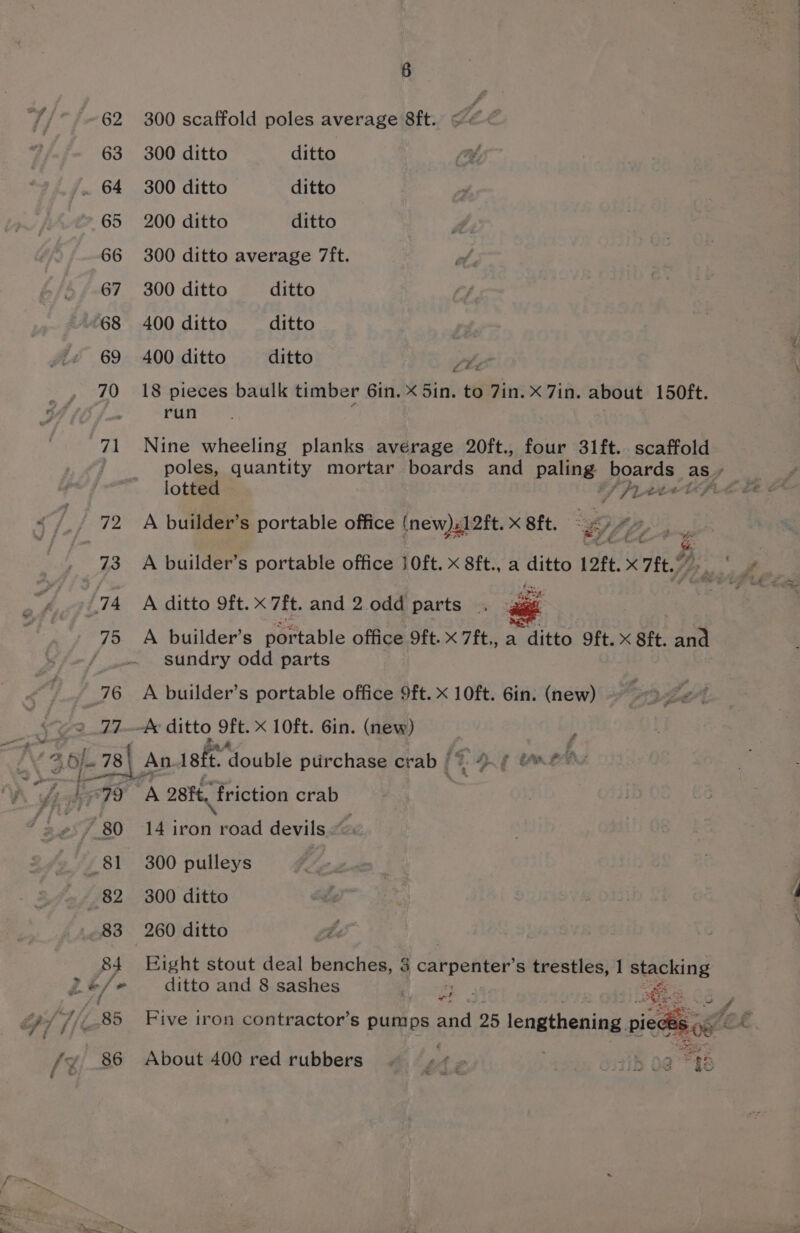 6
62 300 scaffold poles average 8ft.
63 300 ditto ditto
64 300 ditto ditto
65 200 ditto ditto
66 300 ditto average 7ft.
67 300 ditto ditto
68 400 ditto ditto
69 400 ditto ditto
70 18 pieces baulk timber 6in. × 5in. to 7in. × 7in. about 150ft.
run
71 Nine wheeling planks average 20ft., four 31ft. scaffold
poles, quantity mortar boards and paling boards as
lotted
72 A builder's portable office (new) 12ft. × 8ft.
73 A builder's portable office 10ft. × 8ft., a ditto 12ft. × 7ft.
74 A ditto 9ft. × 7ft. and 2 odd parts
75 A builder's portable office 9ft. × 7ft., a ditto 9ft. × 8ft. and
sundry odd parts
76 A builder's portable office 9ft. × 10ft. 6in. (new)
77 A ditto 9ft. × 10ft. 6in. (new)
78 An 18ft. double purchase crab
79 A 28ft. friction crab
80 14 iron road devils
81 300 pulleys
82 300 ditto
83 260 ditto
84 Eight stout deal benches, 3 carpenter's trestles, 1 stacking
ditto and 8 sashes
85 Five iron contractor's pumps and 25 lengthening pieces
86 About 400 red rubbers